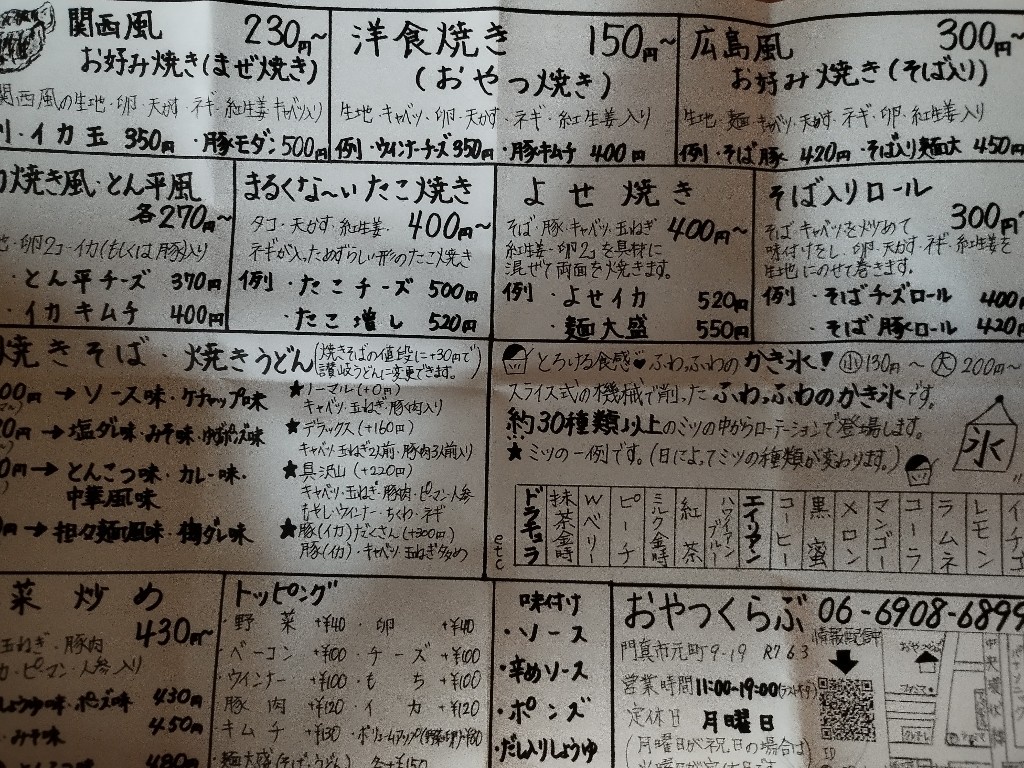 関西風 230円~
お好み焼き(まぜ焼き)
関西風の生地・卵・天かす・ネギ・紅生姜 キャベツ入り
イカ玉 350円 ・豚モダン 500円
洋食焼き 150円~
(おやつ焼き)
生地・キャベツ・卵・天かす・ネギ・紅生姜入り
例 ・ウインナーチーズ 350円 ・豚キムチ 400円
広島風 300円~
お好み焼き(そば入り)
生地・麺・キャベツ・天かす・ネギ・卵・紅生姜入り
例・そば豚 420円 ・そば入り麺大 450円
焼き風・とん平風
各270円~
卵2コ・イカ(もしくは豚)入り
・とん平チーズ 370円
・イカキムチ 400円
まるくな〜いたこ焼き
タコ・天かす・紅生姜・ 400円~
ネギが入っためずらしい形のたこ焼き
例 ・たこチーズ 500円
・たこ増し 520円
よせ焼き
そば・豚・キャベツ・玉ねぎ 400円~
紅生姜・卵2コを具材に
混ぜて両面を焼きます。
例 ・よせイカ 520円
・麺大盛 550円
そば入りロール
そば・キャベツを炒めて 300円~
味付けをし、卵・天かす・ネギ・紅生姜を
生地にのせて巻きます。
例 ・そばチーズロール 400円
・そば豚ロール 420円
焼きそば・焼きうどん(焼きそばの値段に+30円で
讃岐うどんに変更できます。)
→ソース味・ケチャップ味
→塩ダレ味・みそ味・
→とんこつ味・カレー味・
中華風味
→担々麺風味・梅ダレ味
★ノーマル(+0円)
キャベツ・玉ねぎ・豚肉入り
★デラックス(+160円)
キャベツ・玉ねぎ2人前・豚肉3人前入り
★具沢山(+220円)
キャベツ・玉ねぎ・豚肉・ピーマン・人参
もやし・ウインナー・ちくわ・ネギ
★豚(イカ)だくさん(+300円)
豚(イカ)・キャベツ・玉ねぎ多め
とろける食感♥ふわふわのかき氷! 小130円〜大200円~
スライス式の機械で削ったふわふわのかき氷です。
約30種類以上のミツの中からローテーションで登場します。
★ミツの一例です。(日によってミツの種類が変わります。)
氷
イチゴ
レモン
ラムネ
コーラ
マンゴー
メロン
黒蜜
コーヒー
エイリアン
ハワイアンブルー
紅茶
ミルク金時
ピーチ
Wベリー
抹茶金時
ドラキュラ
etc
菜炒め
玉ねぎ・豚肉 430円~
ピーマン・人参入り
しょうゆ味・ポン酢味 430円
・みそ味 450円
480円
トッピング
・野菜 +¥40 ・卵 +¥40
・ベーコン +¥100 ・チーズ +¥100
・ウインナー +¥100 ・もち +¥100
・豚肉 +¥120 ・イカ +¥120
・キムチ +¥130 ・ボリュームアップ
・麺大盛(そば・うどん) 各+¥150
味付け
・ソース
・辛めソース
・ポンズ
・だし入りしょうゆ
おやつくらぶ 06-6908-6899
門真市元町9-19 R7 6 3
営業時間 11:00~19:00(ラストオーダー)
定休日 月曜日
(月曜日が祝日の場合は
情報配信中
おやつくらぶ